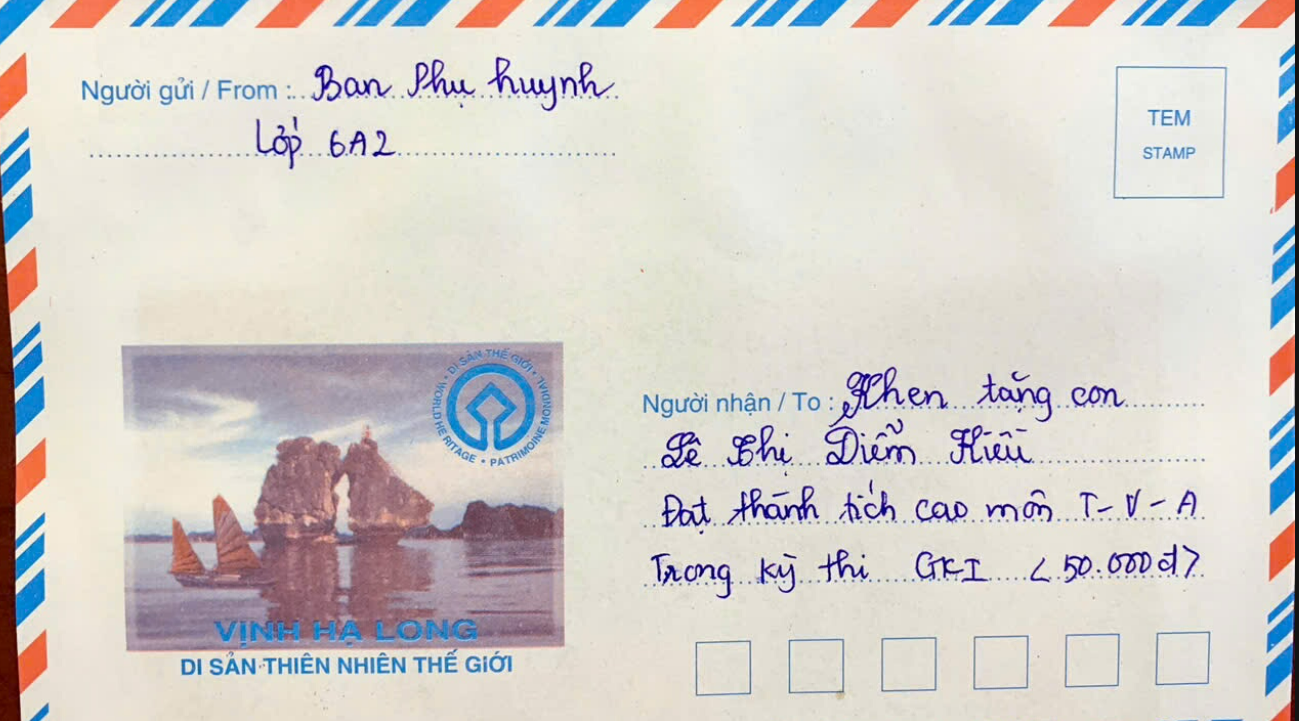 Người gửi / From : Ban Phụ huynh
Lớp 6A2
TEM
STAMP
WORLD HERITAGE • DI SẢN THẾ GIỚI • PATRIMOINE MONDIAL
VỊNH HẠ LONG
DI SẢN THIÊN NHIÊN THẾ GIỚI
Người nhận / To : Khen tặng con
Lê Thị Diễm Kiều
Đạt thành tích cao môn T-V-A
Trong kỳ thi GKI <50.000đ>